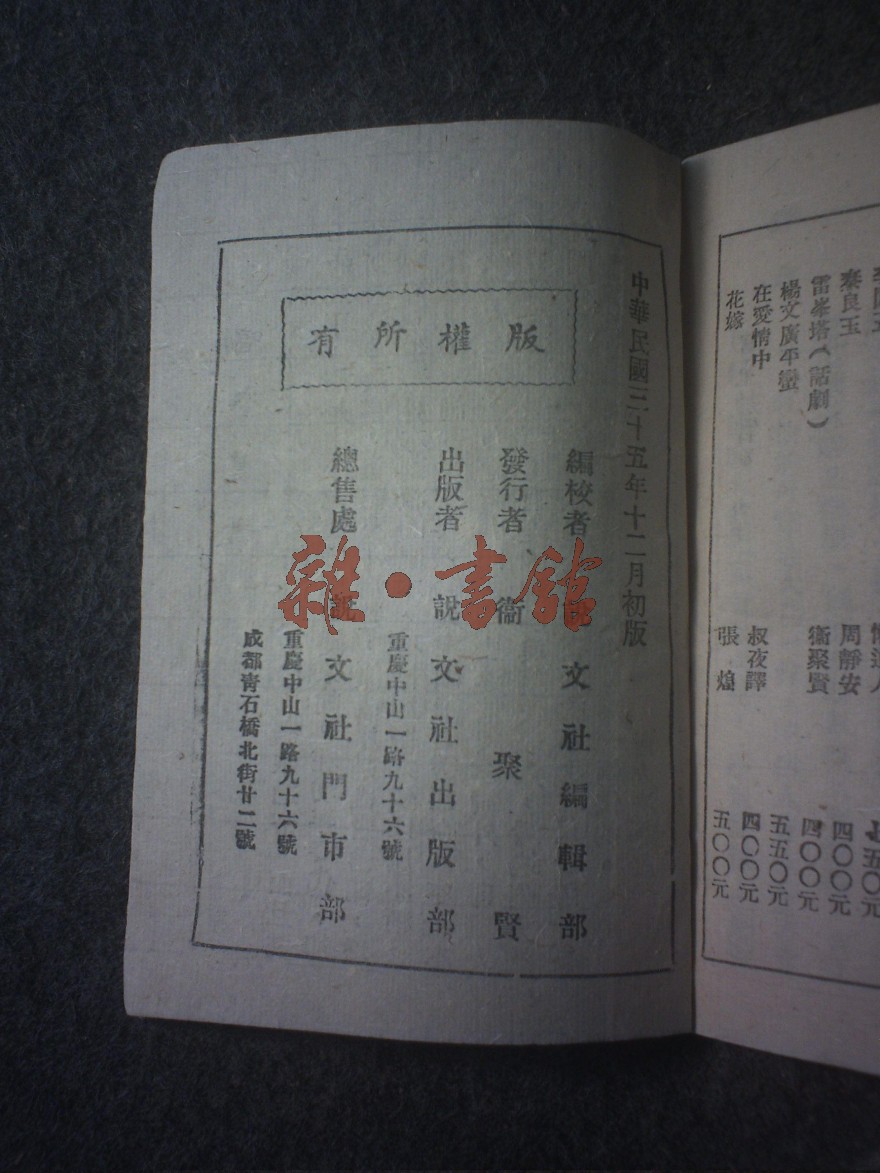 秦良玉
雷峯塔（話劇） 衞聚賢 四〇〇元
楊文廣平蠻
在愛情中 叔夜譯
花嫁 張煌 五〇〇元
周靜安
四〇〇元
五五〇元
四〇〇元
五〇元
中華民國三十五年十二月初版
版權所有
編校者 說文社編輯部
發行者 衞聚賢
出版者 說文社出版部
重慶中山一路九十六號
總售處 說文社門市部
重慶中山一路九十六號
成都靑石橋北街廿二號
雜·書館